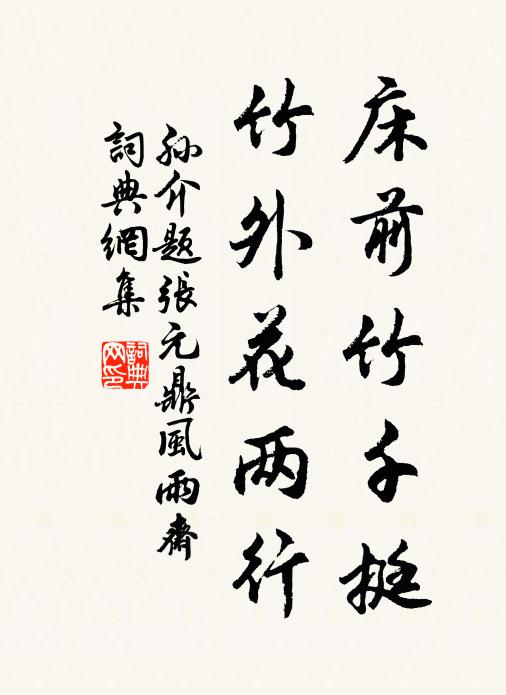 床前竹千挺
竹外花两行
孙介题張元鼎風雨齋
詞典網集
詞典网印